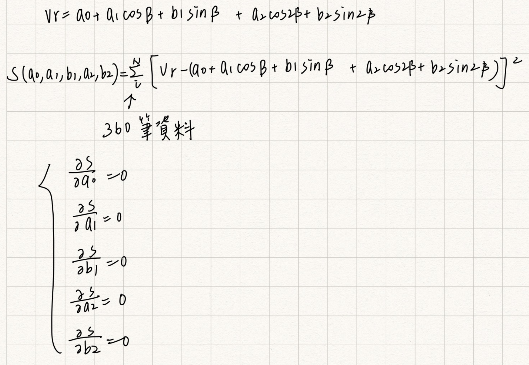 Vr = a0 + a1 cosβ + b1 sinβ + a2 cos2β + b2 sin2β
S(a0, a1, b1, a2, b2) = Σ_i^N [Vr - (a0 + a1 cosβ + b1 sinβ + a2 cos2β + b2 sin2β)]²
↑
360 筆資料
∂S/∂a0 = 0
∂S/∂a1 = 0
∂S/∂b1 = 0
∂S/∂a2 = 0
∂S/∂b2 = 0